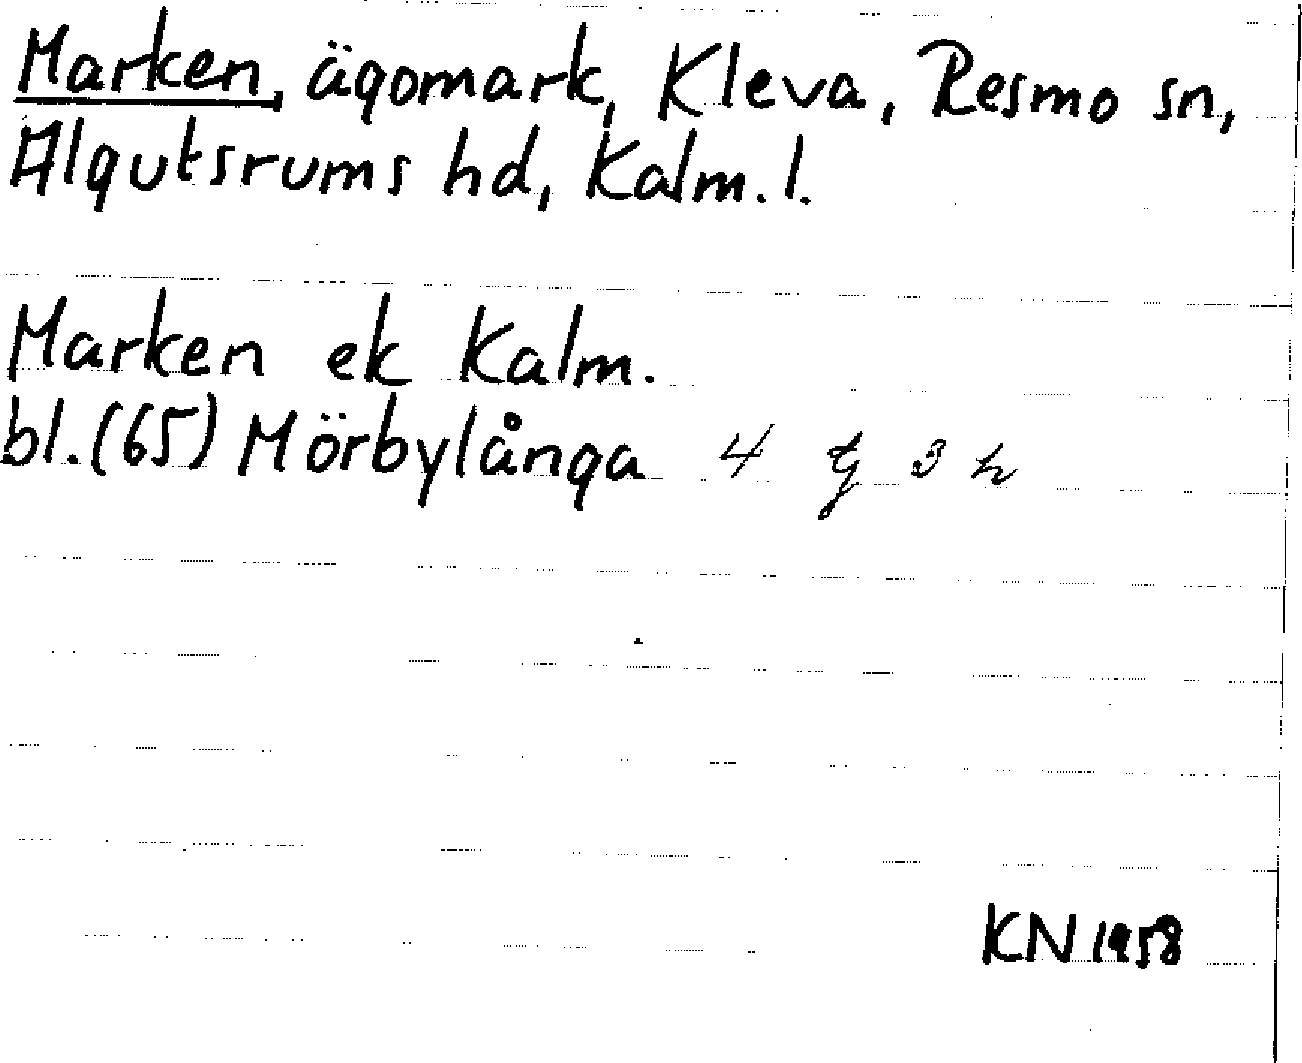 Marken, ägomark, Kleva, Resmo sn,
Algutsrums hd, Kalm. l.
Marken ek Kalm.
bl. (65) Mörbylånga 4 g 3 h
KN 1958